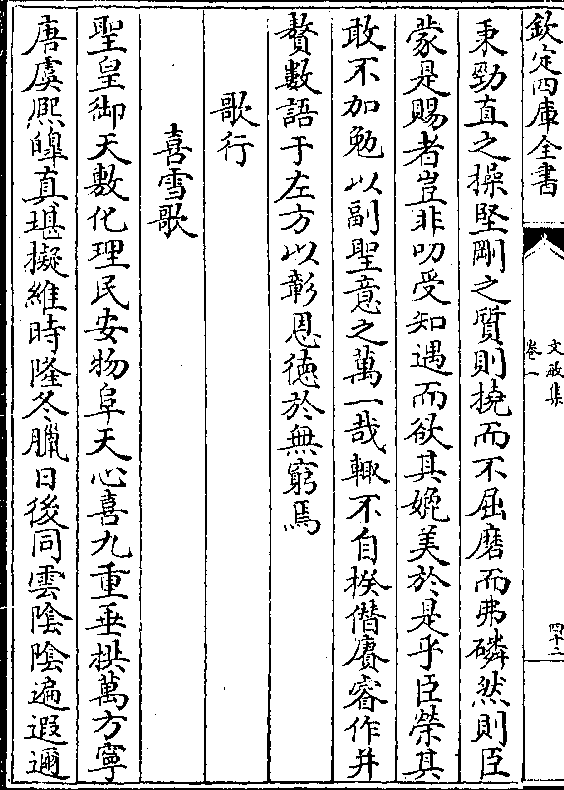 欽定四庫全書
文敏集
卷一
四十二
秉勁直之操堅剛之質則撓而不屈磨而弗磷然則臣
蒙是賜者豈非叨受知遇而欲其婉美於是乎臣榮其
敢不加勉以副聖意之萬一哉輒不自揆僭賡睿作并
贅數語于左方以彰恩徳於無窮焉
歌行
喜雪歌
聖皇御天敷化理民安物阜天心喜九重垂拱萬方寧
唐虞熈皥真堪擬維時隆冬臘日後同雲陰陰遍遐邇